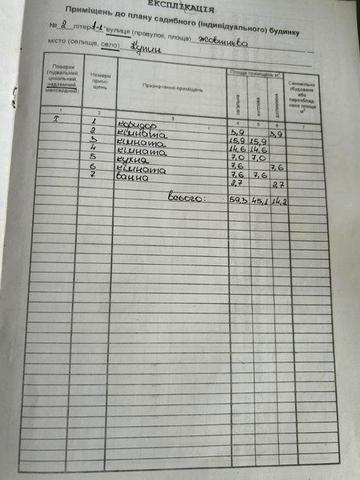 ЕКСПЛІКАЦІЯ
Приміщень до плану садибного (індивідуального) будинку
№ 2 літер А-1 вулиця (провулок, площа) Жовтнева
місто (селище, село)
Поверхи (підвальний цокольний, надземний, мансардний)
Номери приміщень
Призначення приміщень
Площа приміщень м²
загальна
житлова
допоміжна
Самовільно збудована або переобладнана площа м²
1 2 3 4 5 6 7
1 1 коридор 5,9 5,9
2 кімната 15,9 15,9
3 кімната 14,6 14,6
4 кімната 7,0 7,0
5 кухня 7,6 7,6
6 кімната 7,6 7,6
7 ванна 2,7 2,7
всього: 59,3 45,1 14,2